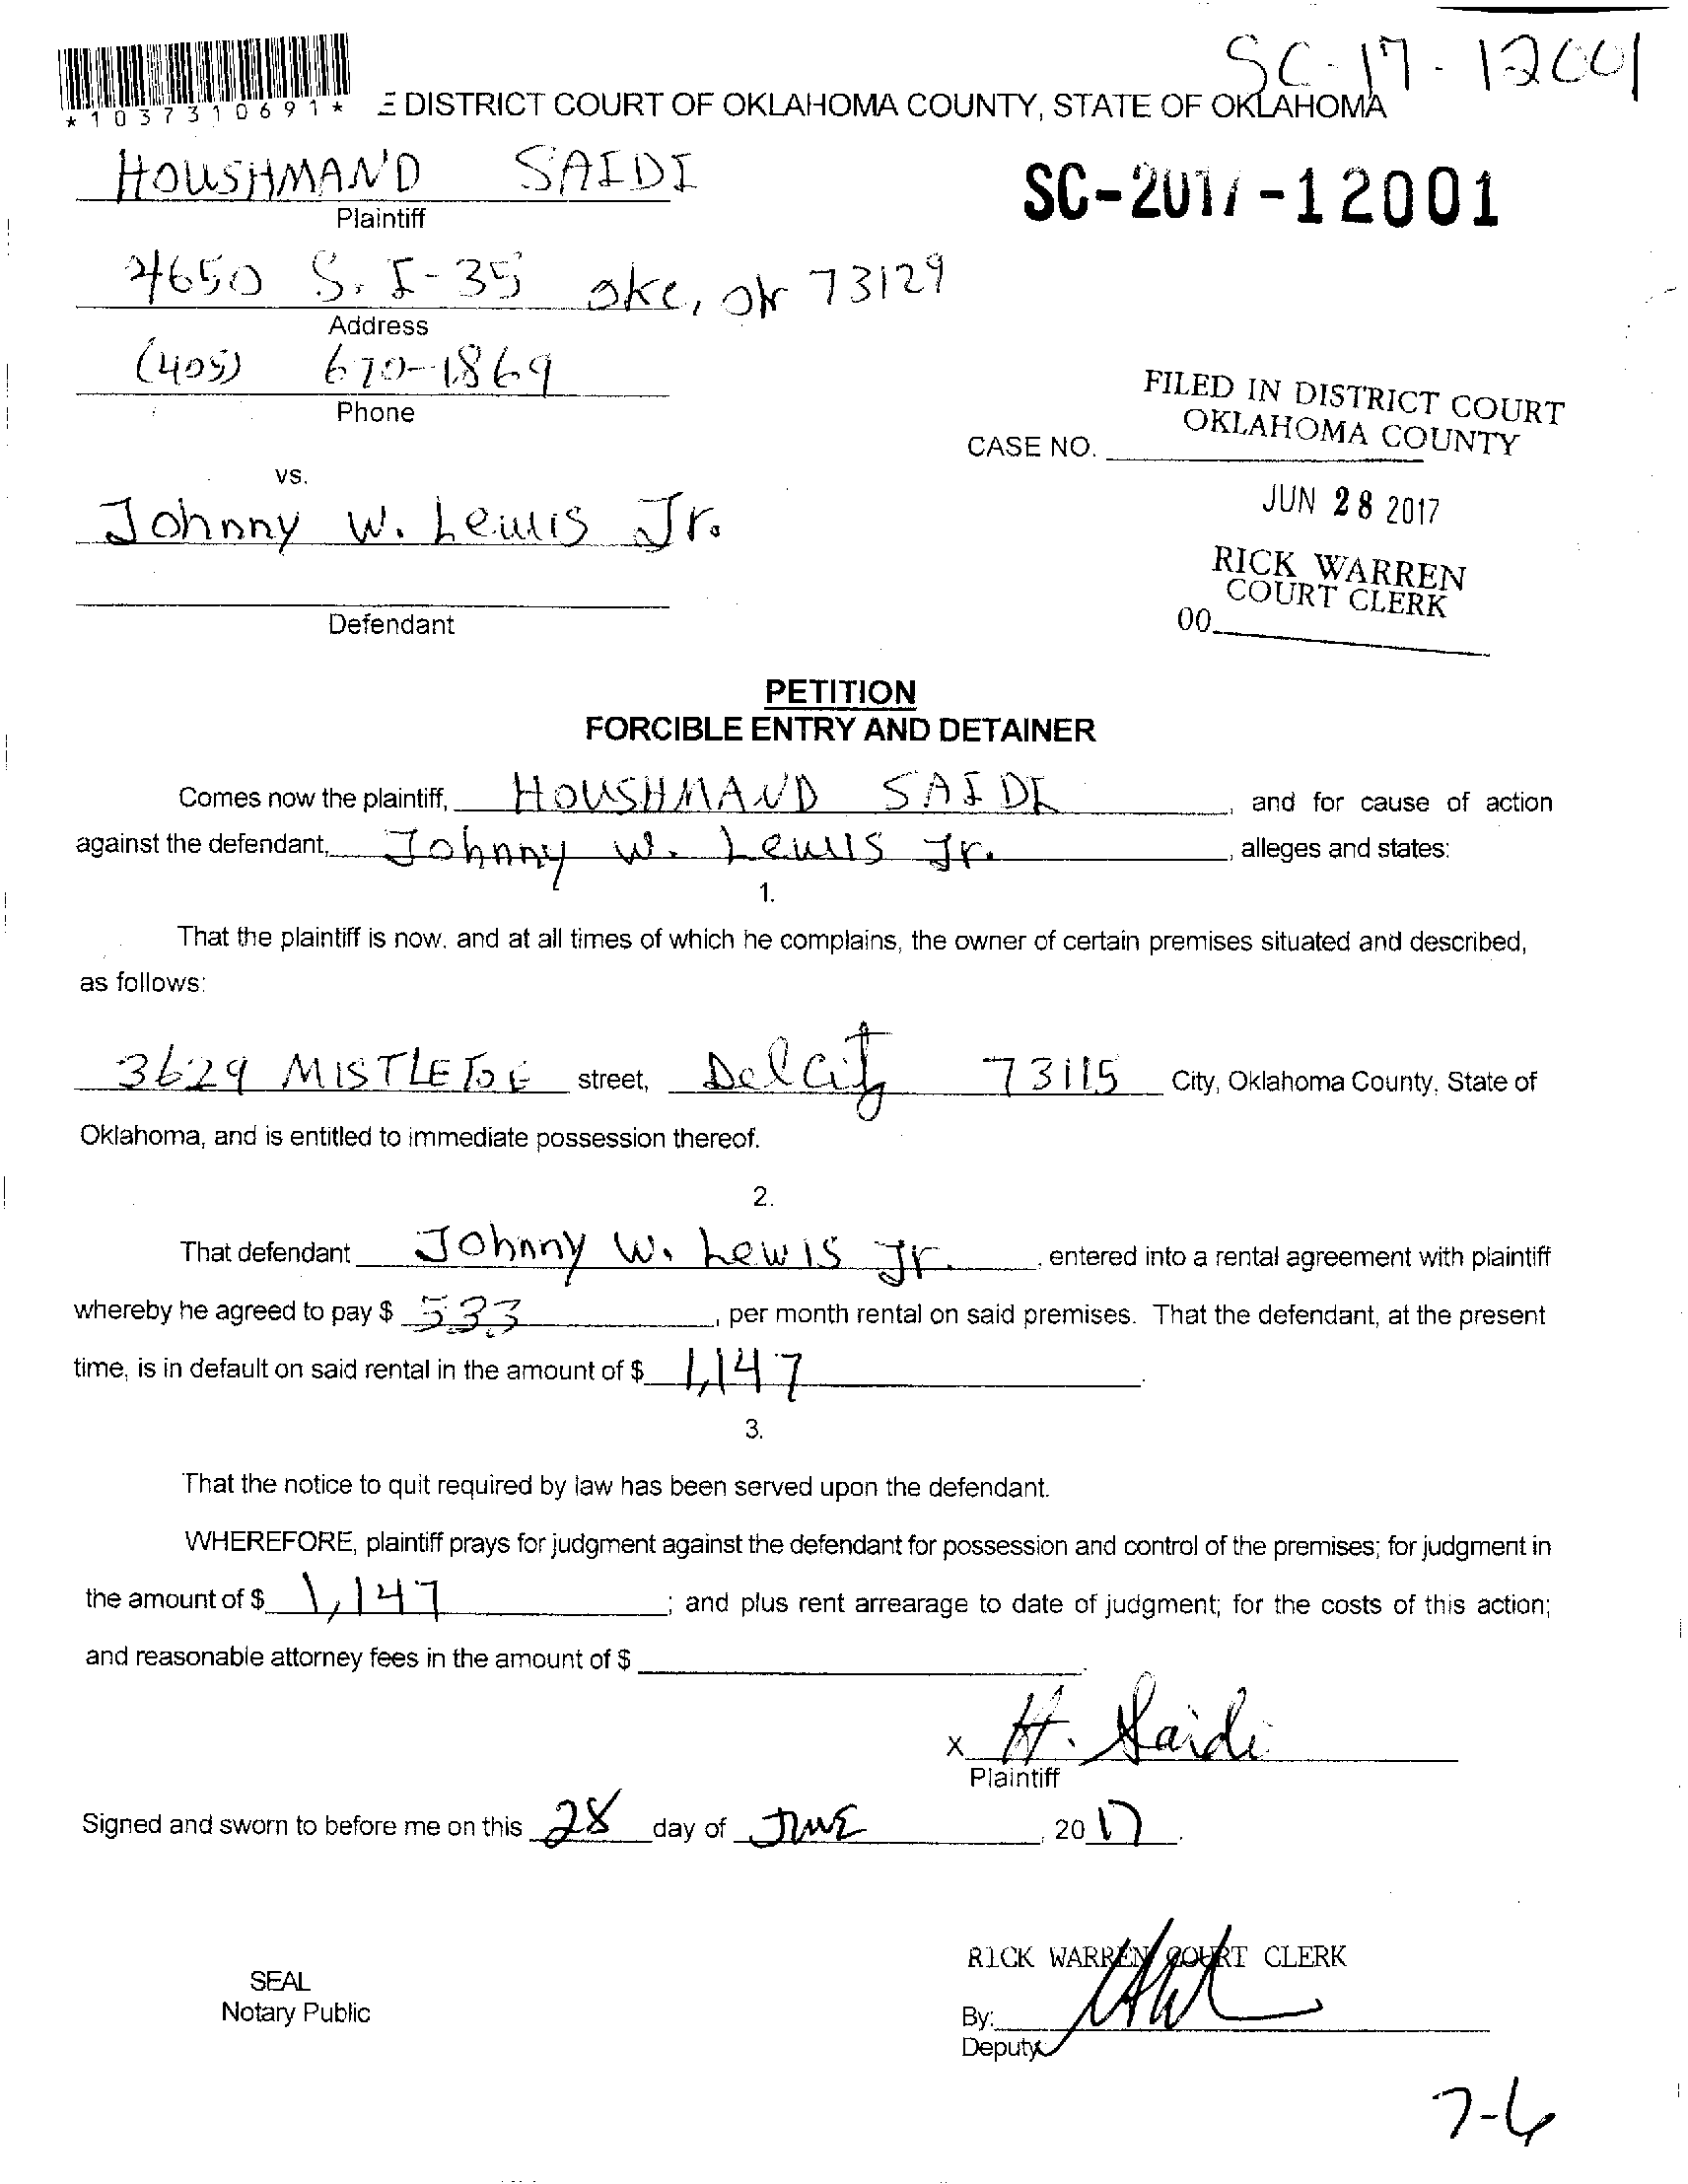 SC-17-12001
*1037310691*
E DISTRICT COURT OF OKLAHOMA COUNTY, STATE OF OKLAHOMA
HOUSHMAND SAIDI
Plaintiff
SC-2017-12001
4650 S. I-35 OKC, OK 73129
Address
(405) 670-1869
Phone
FILED IN DISTRICT COURT
OKLAHOMA COUNTY
CASE NO.
vs.
JUN 28 2017
Johnny W. Lewis Jr.
RICK WARREN
COURT CLERK
00
Defendant
PETITION
FORCIBLE ENTRY AND DETAINER
Comes now the plaintiff, HOUSHMAND SAIDI, and for cause of action
against the defendant, Johnny W. Lewis Jr., alleges and states:
1.
That the plaintiff is now, and at all times of which he complains, the owner of certain premises situated and described,
as follows:
3629 MISTLETOE street, Del City 73115 City, Oklahoma County, State of
Oklahoma, and is entitled to immediate possession thereof.
2.
That defendant Johnny W. Lewis Jr., entered into a rental agreement with plaintiff
whereby he agreed to pay $ 533, per month rental on said premises. That the defendant, at the present
time, is in default on said rental in the amount of $ 1,147.
3.
That the notice to quit required by law has been served upon the defendant.
WHEREFORE, plaintiff prays for judgment against the defendant for possession and control of the premises; for judgment in
the amount of $ 1,147; and plus rent arrearage to date of judgment; for the costs of this action;
and reasonable attorney fees in the amount of $.
x H. Saidi
Plaintiff
Signed and sworn to before me on this 28 day of JUNE, 2017.
RICK WARREN COURT CLERK
SEAL
Notary Public
By:
Deputy
7-6